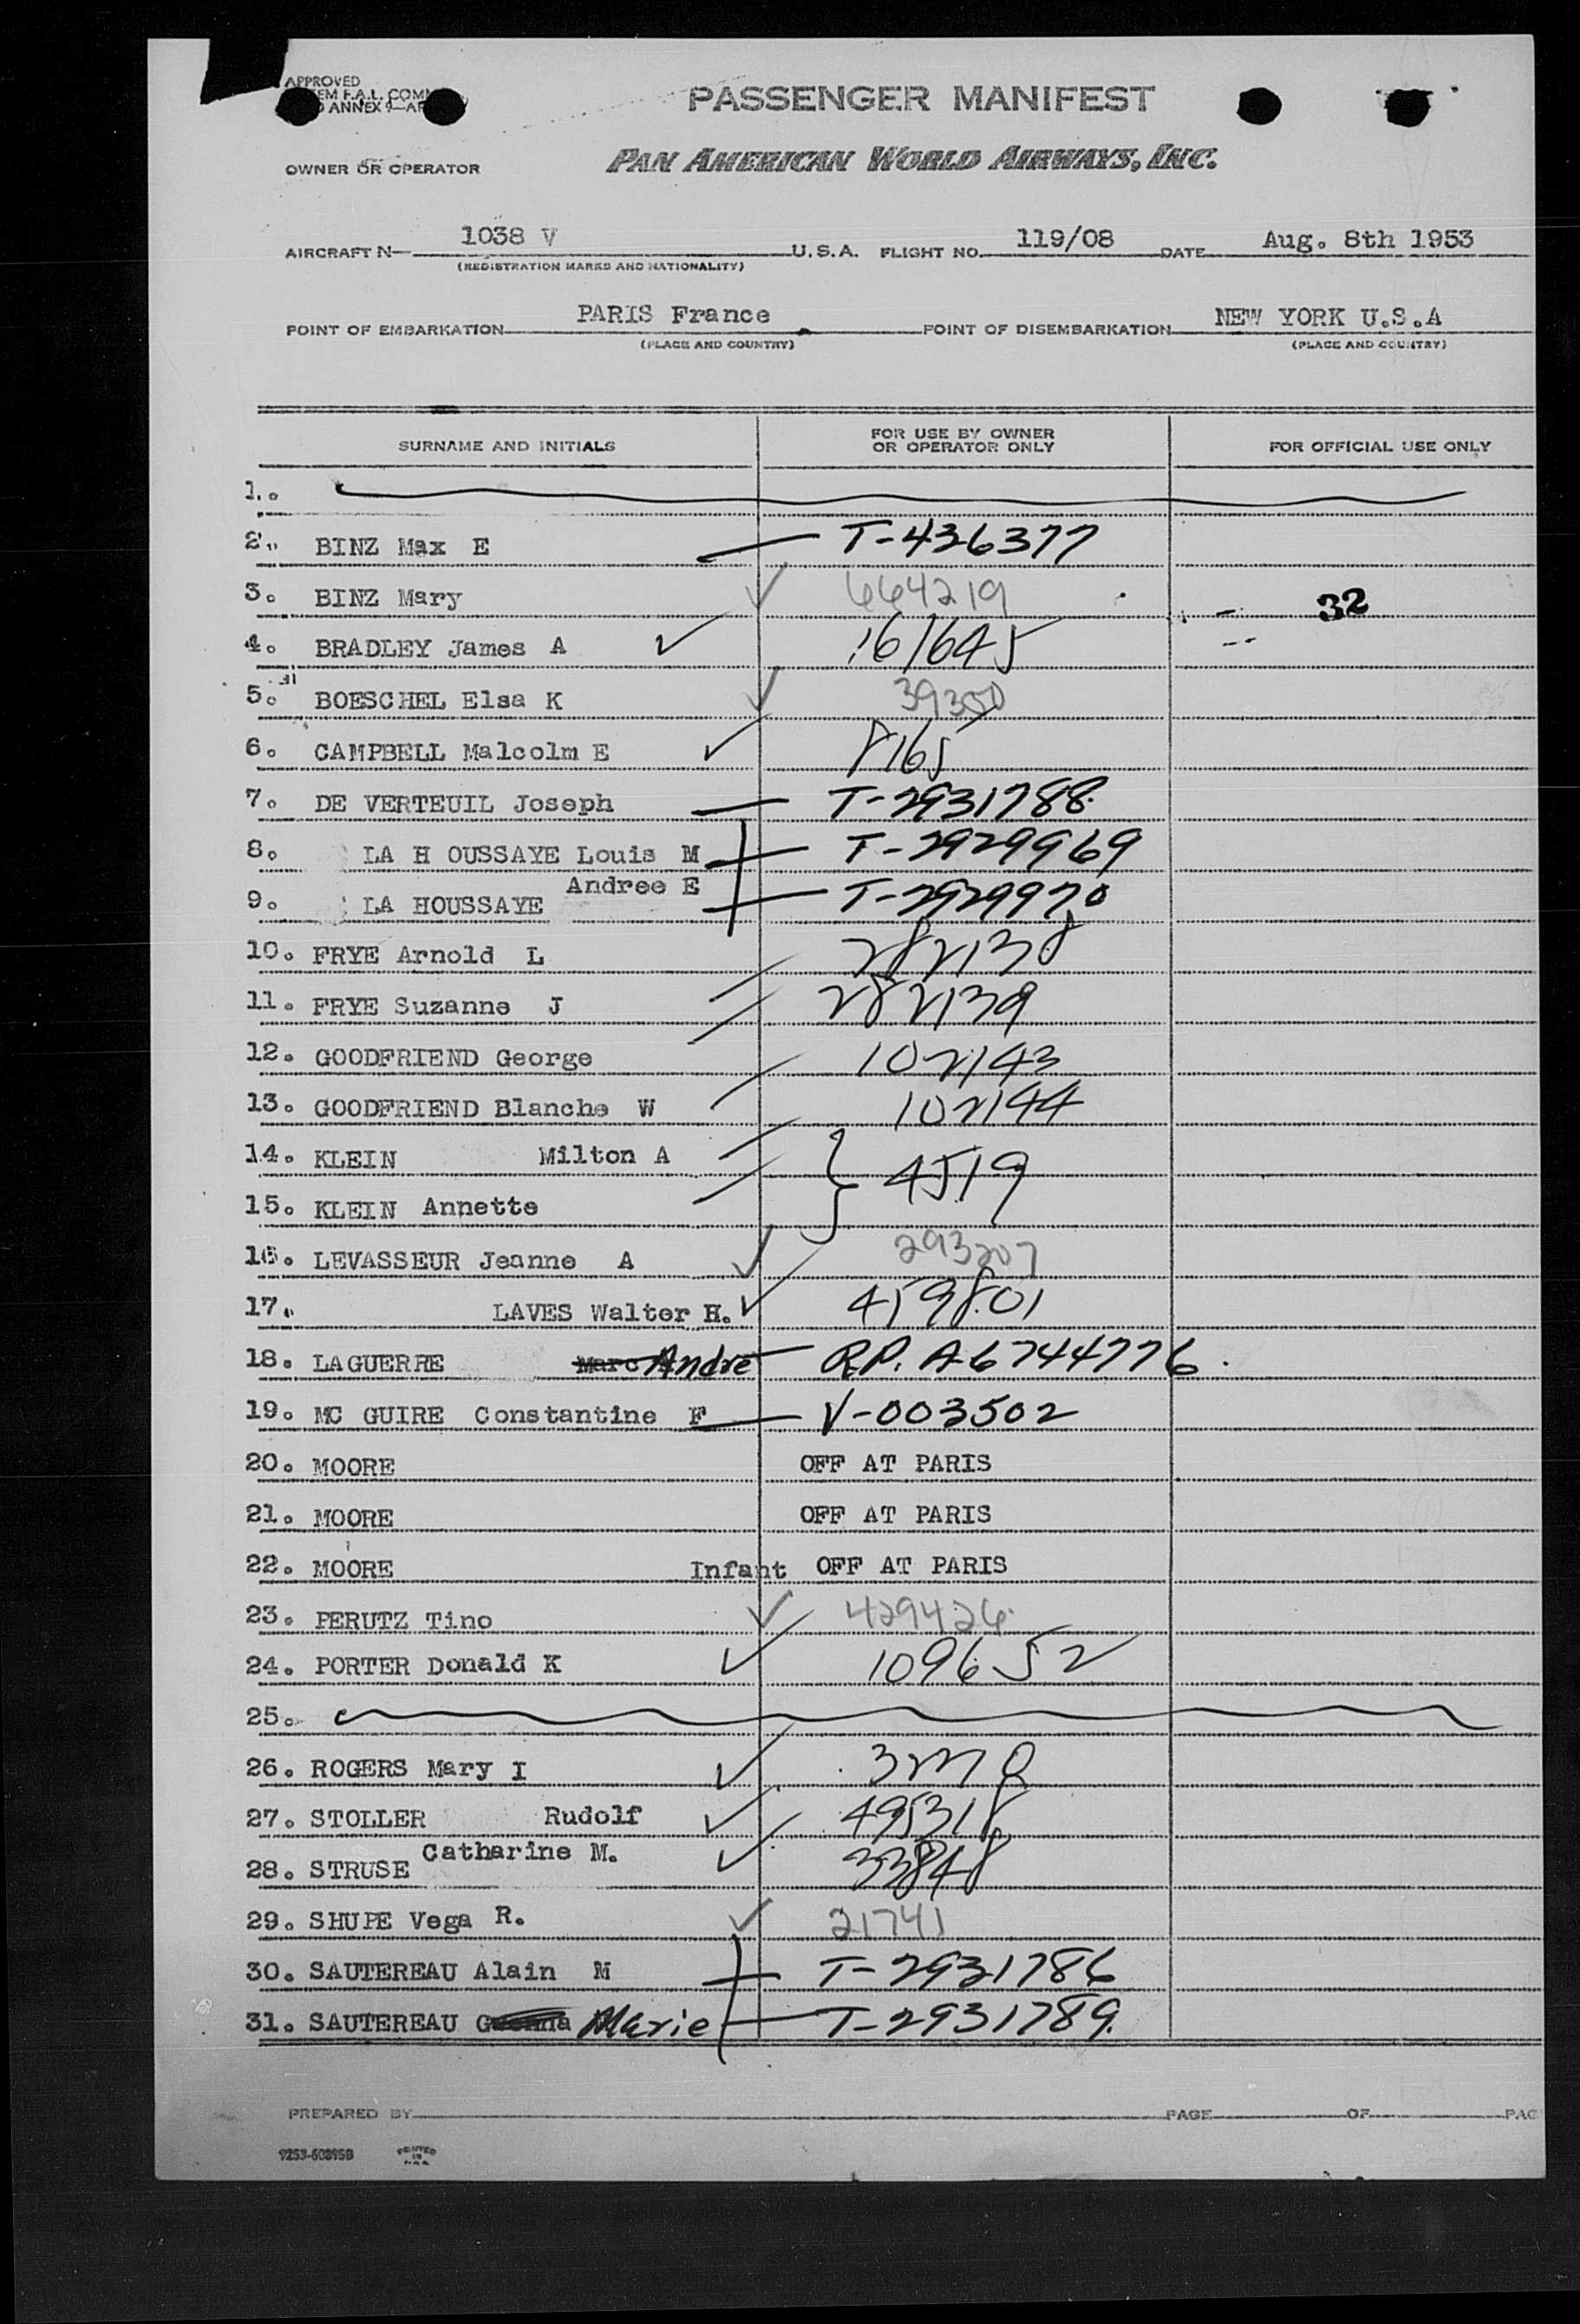 APPROVED
EM F.A.L. COMM
ANNEX 9—AP
PASSENGER MANIFEST
OWNER OR OPERATOR
PAN AMERICAN WORLD AIRWAYS, INC.
AIRCRAFT N— 1038 V U.S.A. FLIGHT NO. 119/08 DATE Aug. 8th 1953
(REGISTRATION MARKS AND NATIONALITY)
POINT OF EMBARKATION PARIS France POINT OF DISEMBARKATION NEW YORK U.S.A
(PLACE AND COUNTRY) (PLACE AND COUNTRY)
SURNAME AND INITIALS FOR USE BY OWNER OR OPERATOR ONLY FOR OFFICIAL USE ONLY
1.
2. BINZ Max E T-436377
3. BINZ Mary 664219 32
4. BRADLEY James A 161645
5. BOESCHEL Elsa K 39350
6. CAMPBELL Malcolm E 8165
7. DE VERTEUIL Joseph T-2931788.
8. LA H OUSSAYE Louis M T-2929969
9. LA HOUSSAYE Andree E T-2929970
10. FRYE Arnold L 282138
11. FRYE Suzanne J 282139
12. GOODFRIEND George 102143
13. GOODFRIEND Blanche W 102144
14. KLEIN Milton A } 4519
15. KLEIN Annette
16. LEVASSEUR Jeanne A 293207
17. LAVES Walter H. 459801
18. LAGUERRE Marc Andre R.P. A6744776
19. MC GUIRE Constantine F V-003502
20. MOORE OFF AT PARIS
21. MOORE OFF AT PARIS
22. MOORE Infant OFF AT PARIS
23. PERUTZ Tino 429426
24. PORTER Donald K 109652
25.
26. ROGERS Mary I
27. STOLLER Rudolf 495318
28. STRUSE Catharine M. 33848
29. SHUPE Vega R. 21741
30. SAUTEREAU Alain M T-2931786
31. SAUTEREAU Marie T-2931789.
PREPARED BY PAGE OF PAG
9253-608958 PRINTED IN